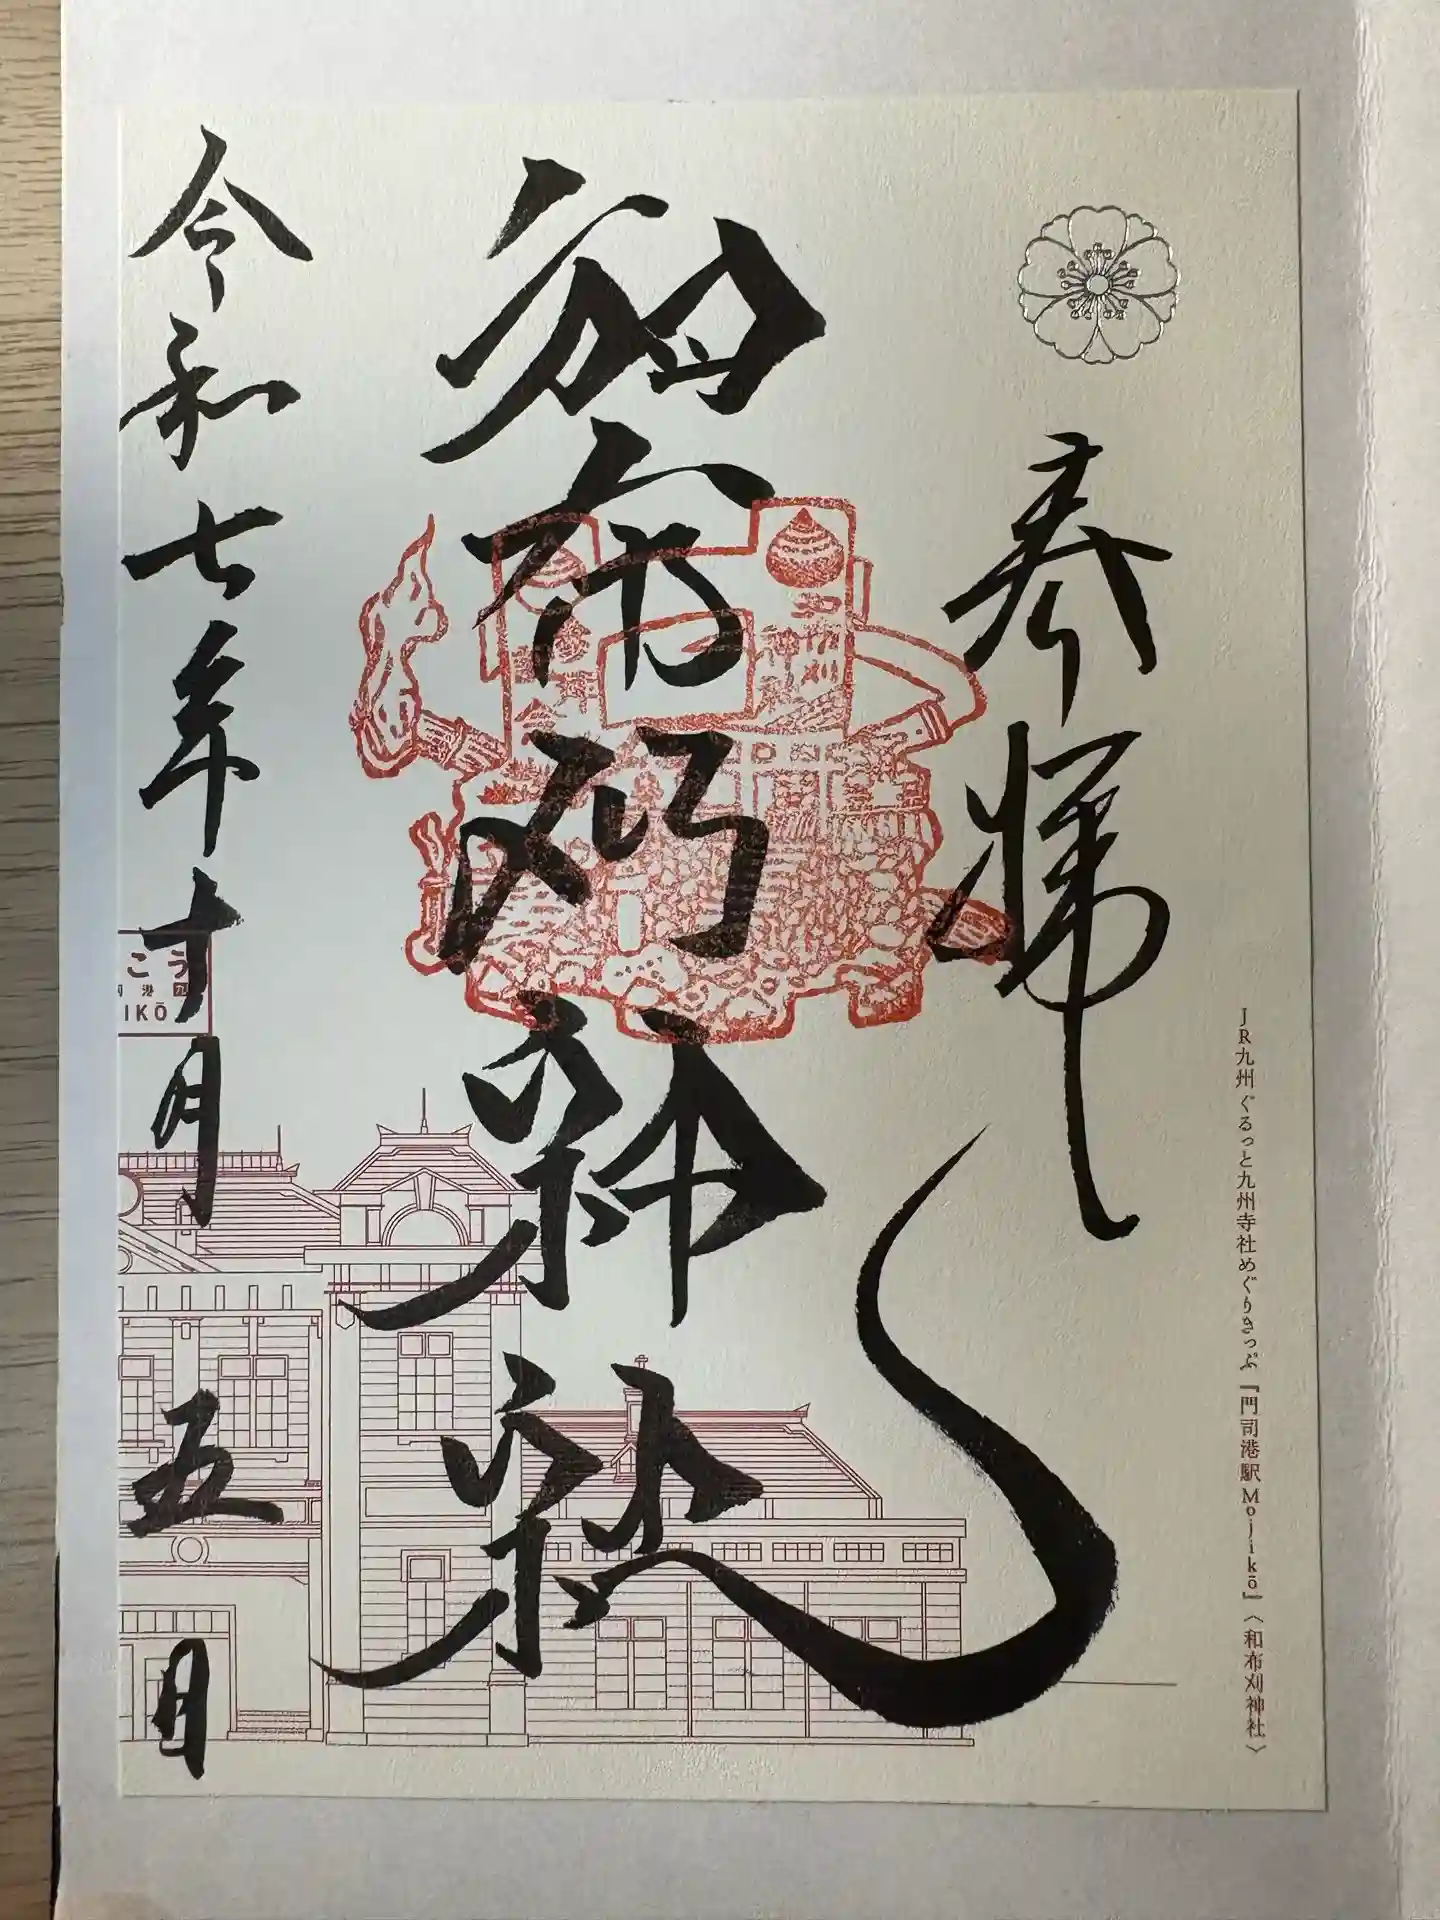 奉拝
和布刈神社
令和七年十月五日
JR九州 ぐるっと九州寺社めぐりきっぷ『門司港駅 Mojikō』〈和布刈神社〉
こう
港 九
IKŌ